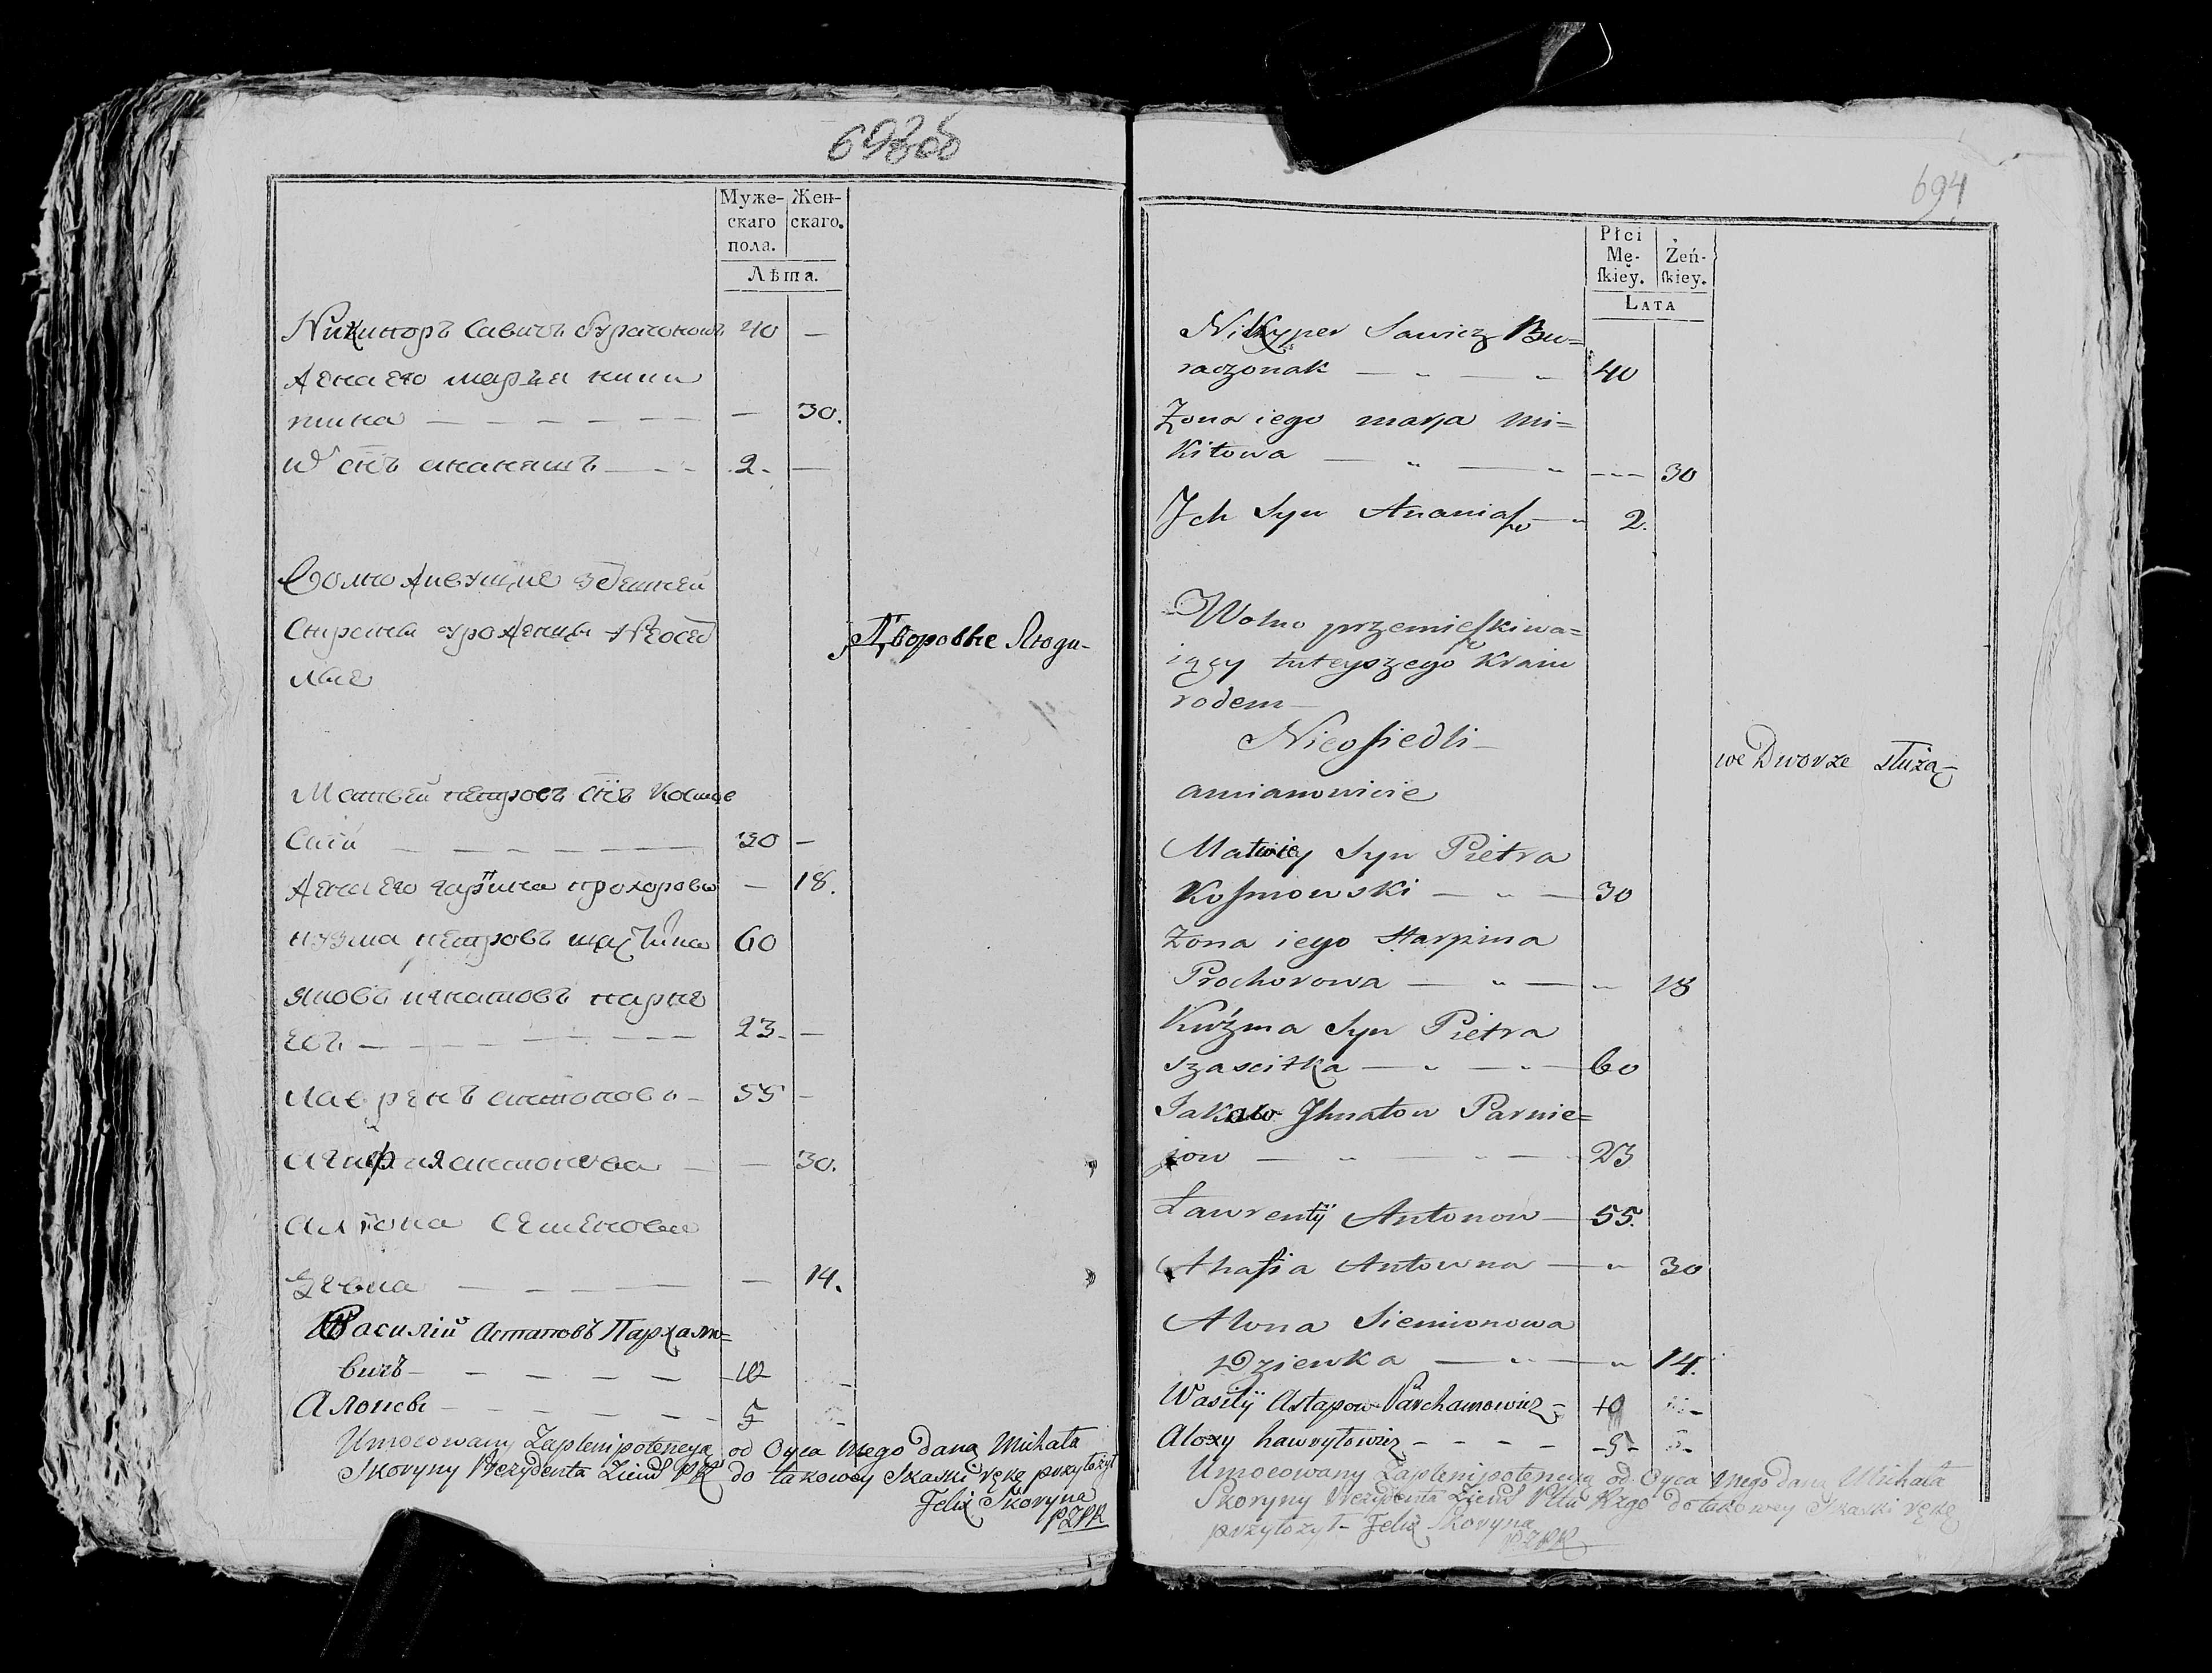 693об
Муже- Жен-
скаго скаго.
пола.
Лѣта.
Никипоръ Савичъ 40 —
Жена его марья ники
тина — 30.
Их снъ ананяшъ 2. —
Волно живущие здешней
Страны уроженцы Неосед
лые
Дворовые Люди
Матвей петровъ снъ Космов
Скій 30 —
Жена его гарпина прохорова — 18.
кузма петровъ 60
яковъ игнатовъ парне
евъ 23. —
лаврент антоновъ 55 —
агафия антонова — 30.
алiона Семенова
Девка — 14.
Василій Астаповъ Пархамо=
вичъ 10 —
5 —
Umocowany Zaplenipotencyą od Oyca mego daną Michała
Skoryny Prezydenta Ziems PR do takowey Skaski rękę przyłożył
Felix Skoryna
PZPR
694
Płci
Mę- Żeń-
skiey. skiey.
LATA
Nikyper Sawicz Bu=
raczonak 40
Żona iego marja Mi=
kitowa 30
Ich Syn Ananiasz 2.
Wolno przemieszkiwa=
iący tuteyszego kraiu
rodem
Nieosiedli
we Dworze służą
amianowicie
Matwiey Syn Pietra
Kosmowski 30
Żona iego Harpina
Prochorowa 18
Kuźma Syn Pietra
Szasciłka 60
Jakow Ihnatow Parnie=
jow 23
Ławrentÿ Antonow 55.
Ahafia Antowna 30
Alona Siemionowa
Dziewka 14.
Wasilÿ Astapow Parchamowicz 10
Aloxy hawryłowicz 5
Umocowany Zaplenipotencyą od Oyca mego daną Michała
Skoryny Prezydenta Ziems Pttu Rzgo do takowey Skaski rękę
przyłożył Felix Skoryna
PZPR